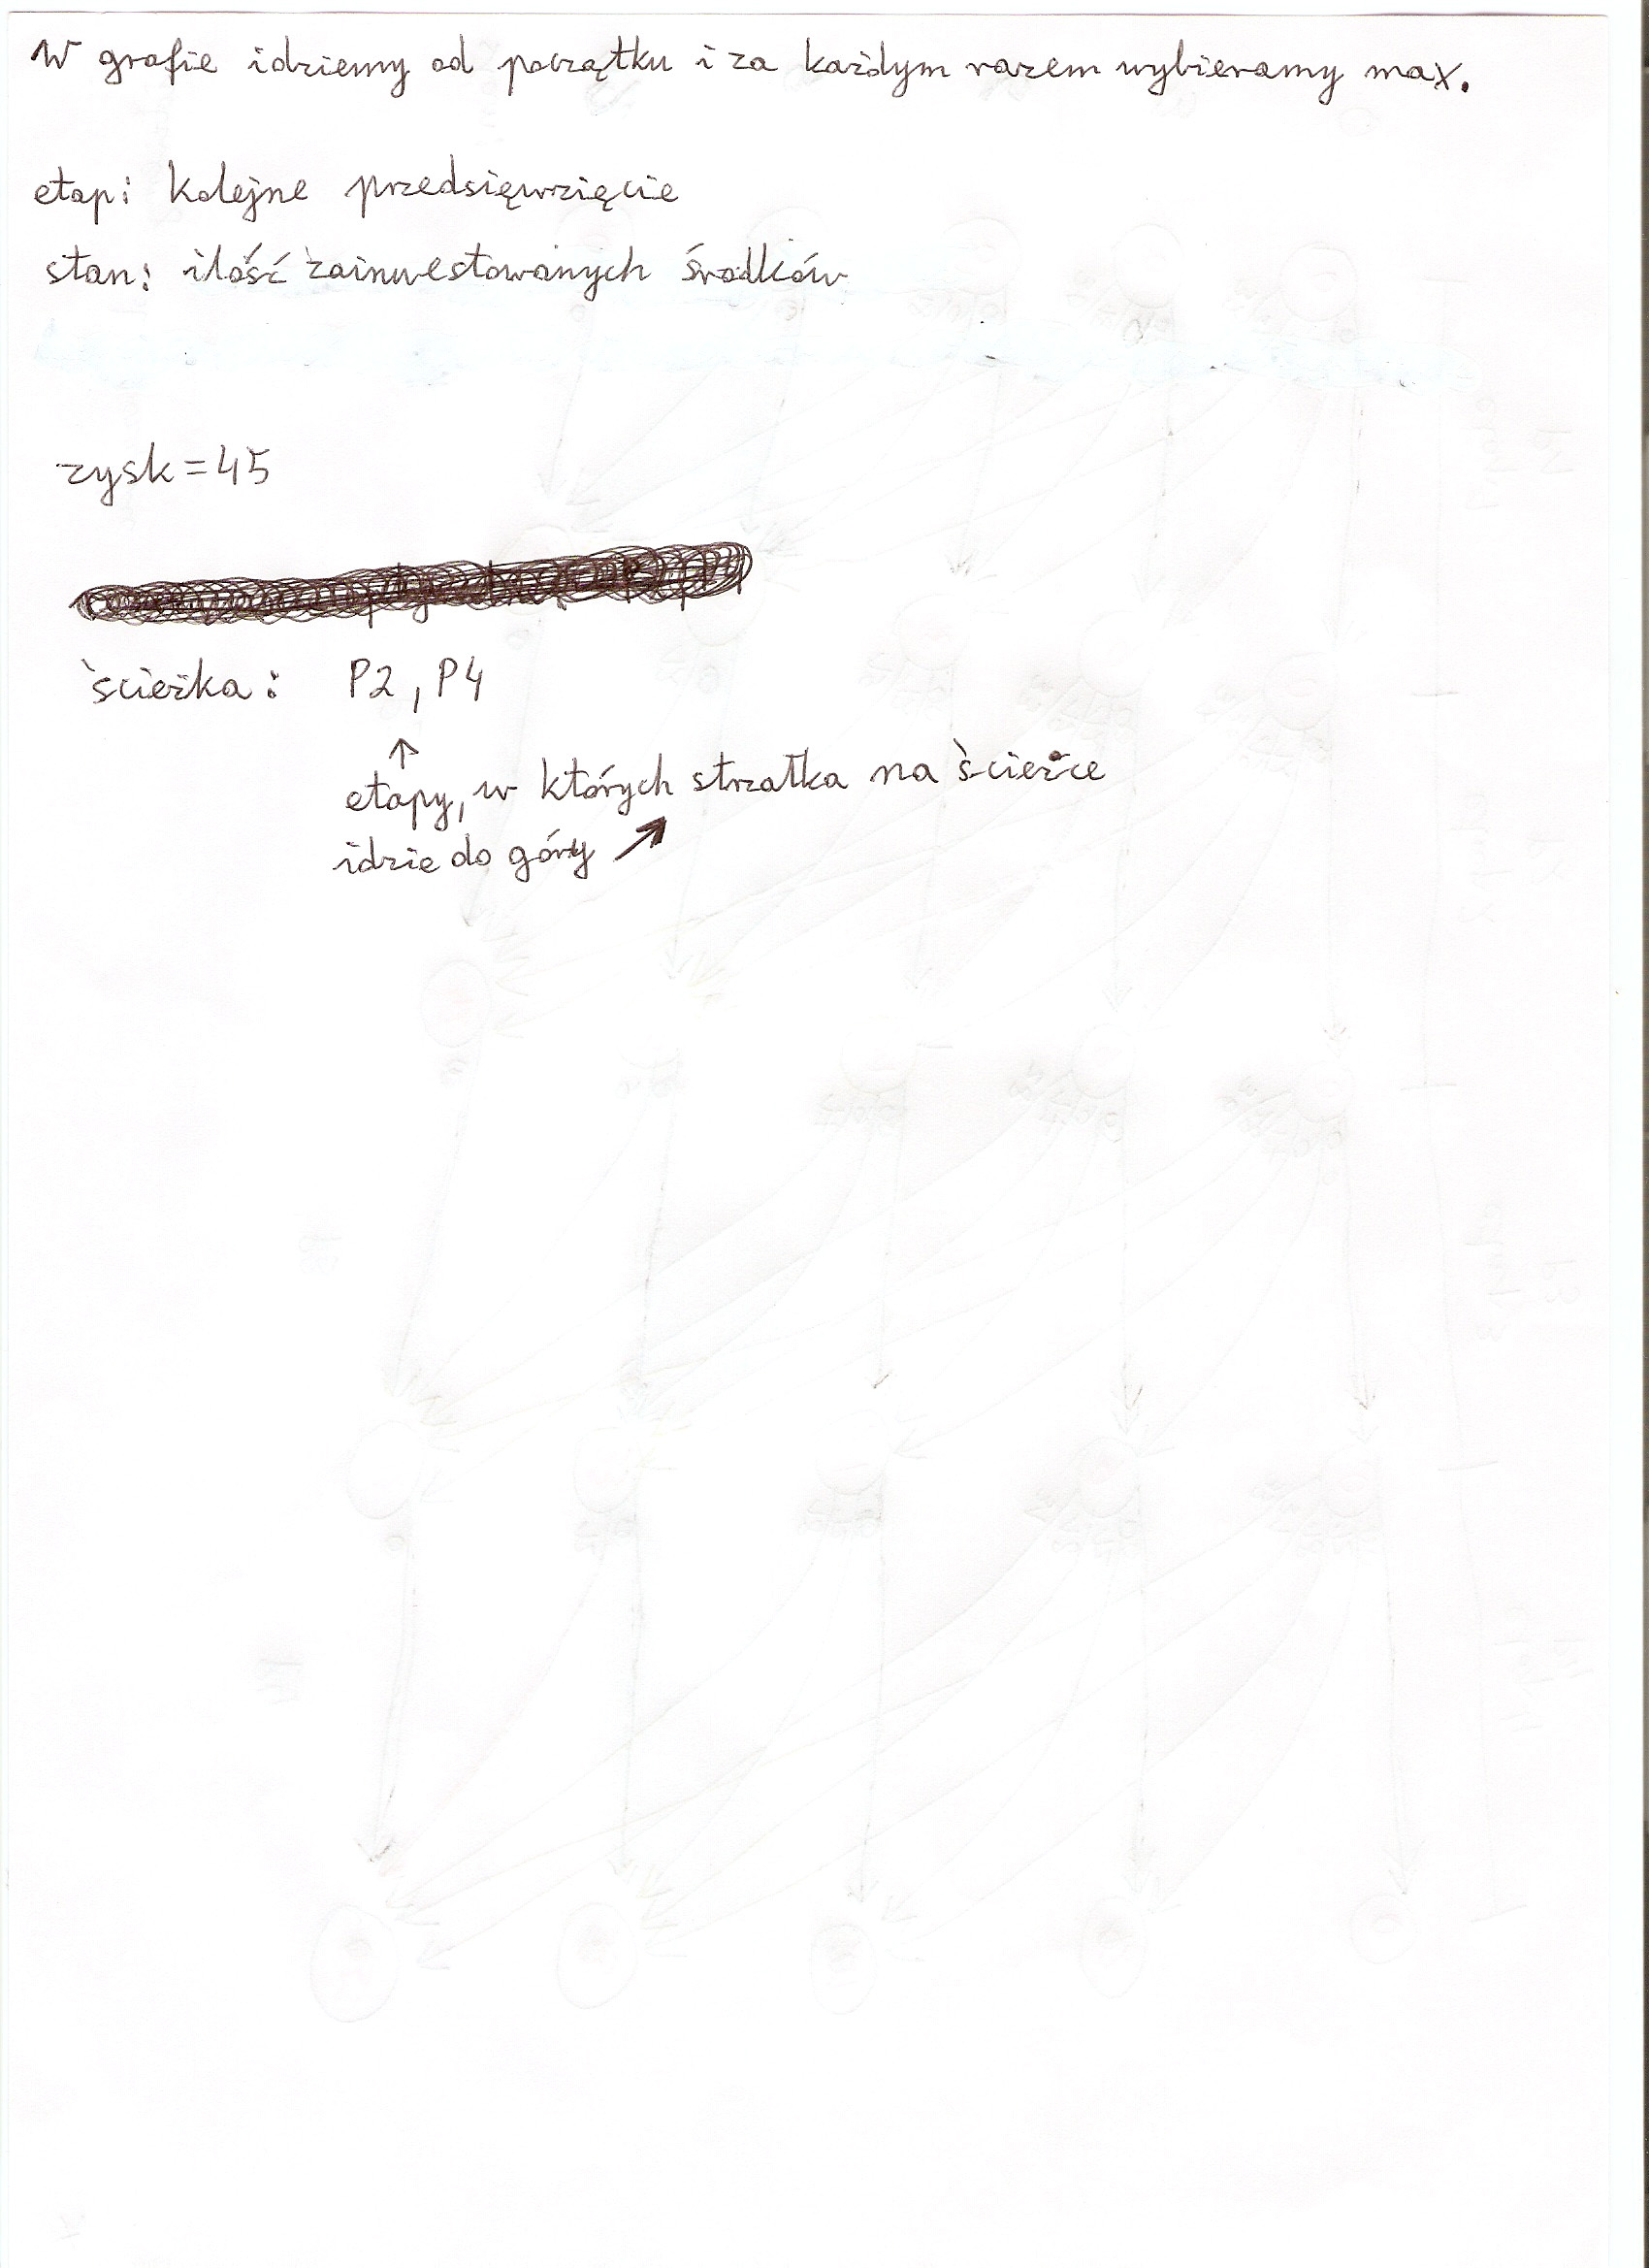 W grafie idziemy od początku i za każdym razem wybieramy max.
etap: kolejne przedsięwzięcie
stan: ilość zainwestowanych środków
zysk = 45
ścieżka: P2, P4
↑
etapy, w których strzałka na ścieżce
idzie do góry ↗